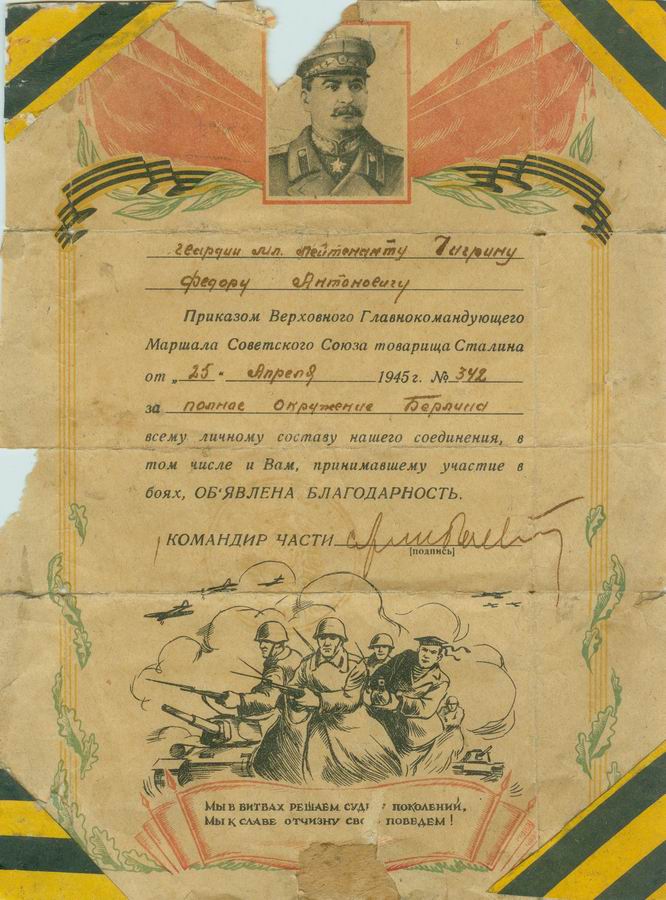 гвардии мл. лейтенанту Тигрину
Федору Антоновичу
Приказом Верховного Главнокомандующего
Маршала Советского Союза товарища Сталина
от „25“ Апреля 1945 г. № 342
за полное окружение Берлина
всему личному составу нашего соединения, в
том числе и Вам, принимавшему участие в
боях, ОБ'ЯВЛЕНА БЛАГОДАРНОСТЬ.
КОМАНДИР ЧАСТИ
[подпись]
МЫ В БИТВАХ РЕШАЕМ СУДЬ ПОКОЛЕНИЙ,
МЫ К СЛАВЕ ОТЧИЗНУ СВО ПОВЕДЕМ !